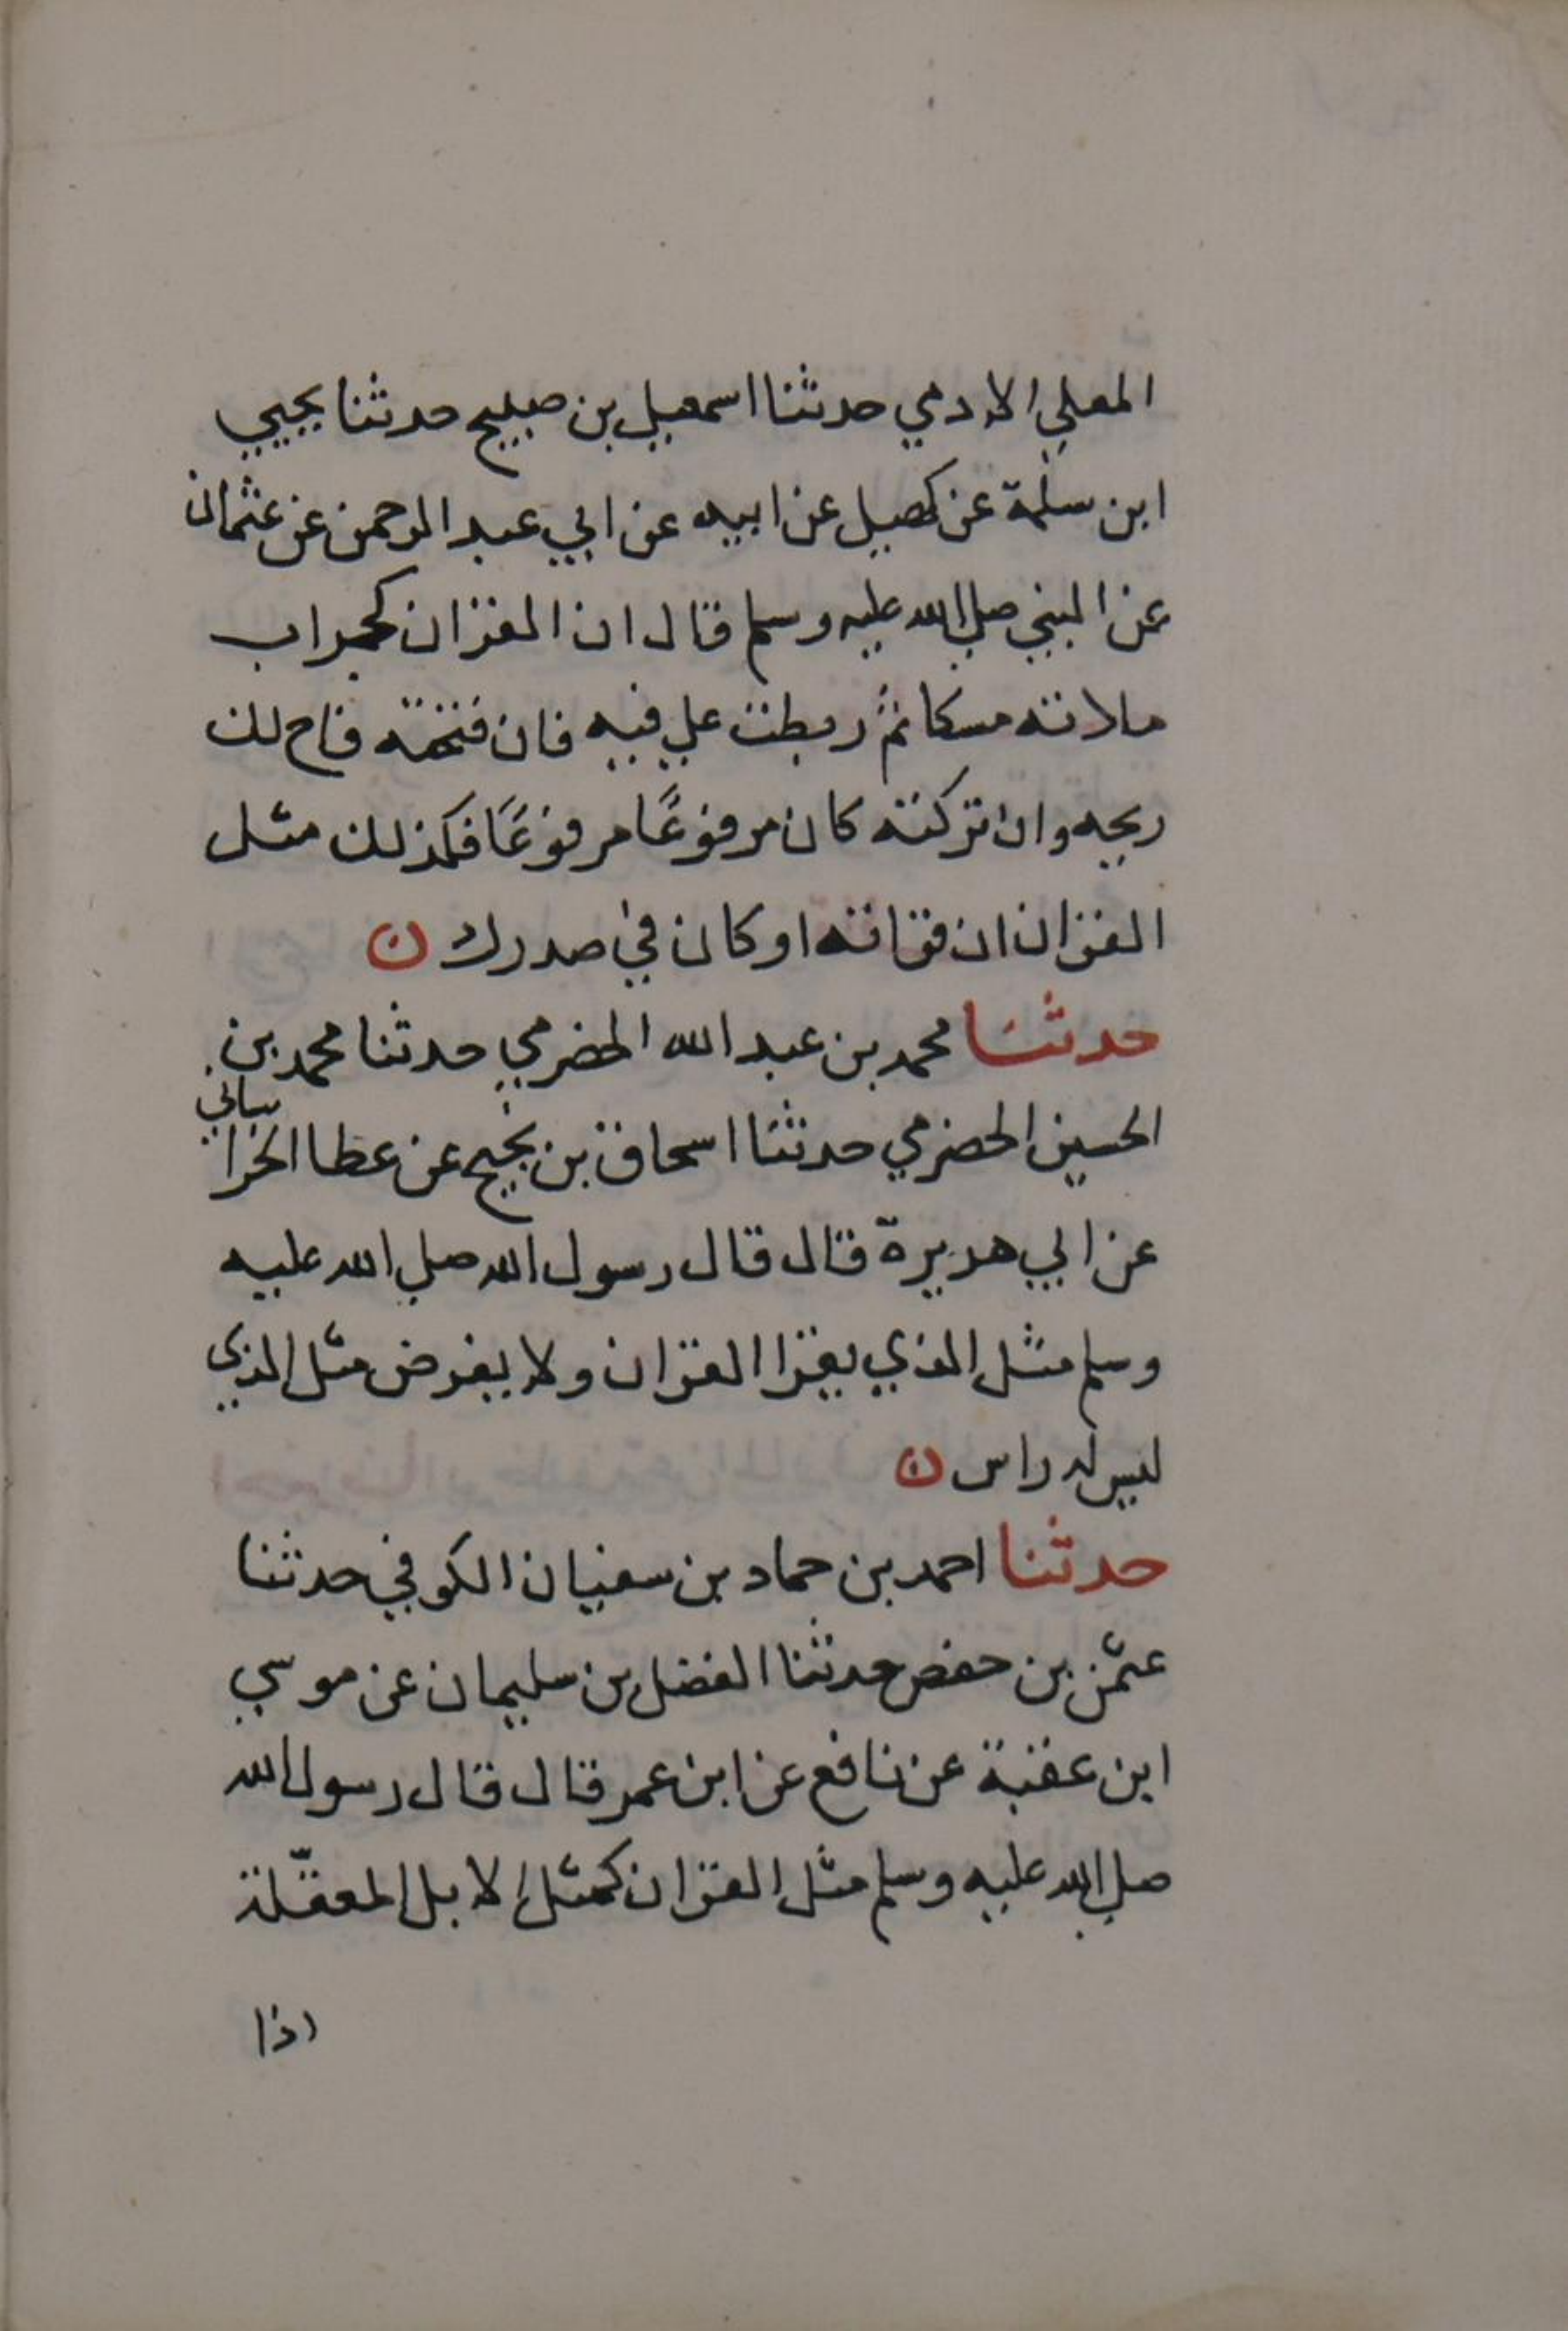 المعلي الادمي حدثنا اسمعيل بن صبيح حدثنا يحيي
ابن سلمة عن كهيل عن ابيه عن ابي عبد الرحمن عن عثمان
عن النبي صلي الله عليه وسلم قال ان القران كجراب
ملاته مسكا ثم ربطت علي فيه فان فتحته فاح لك
ريحه وان تركته كان مرفوعًا مرفوعًا فكذلك مثل
القران ان قراته او كان في صدرك ن
حدثنا محمد بن عبد الله الحضرمي حدثنا محمد بن
الحسين الحضرمي حدثنا اسحاق بن نجيح عن عطا الخراساني
عن ابي هريرة قال قال رسول الله صلي الله عليه
وسلم مثل الذي يقرا القران ولا يفرض مثل الذي
ليس له راس ن
حدثنا احمد بن حماد بن سفيان الكوفي حدثنا
عثمن بن حفص حدثنا الفضل بن سليمان عن موسي
ابن عقبة عن نافع عن ابن عمر قال قال رسول الله
صلي الله عليه وسلم مثل القران كمثل الابل المعقّلة
اذا